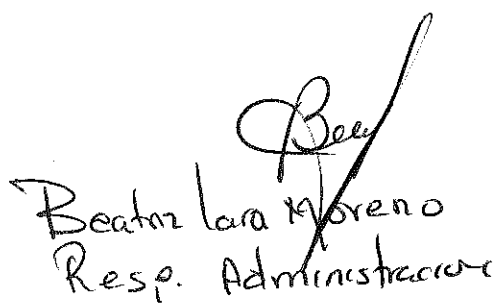 Beatriz Lara Moreno
Resp. Administracion